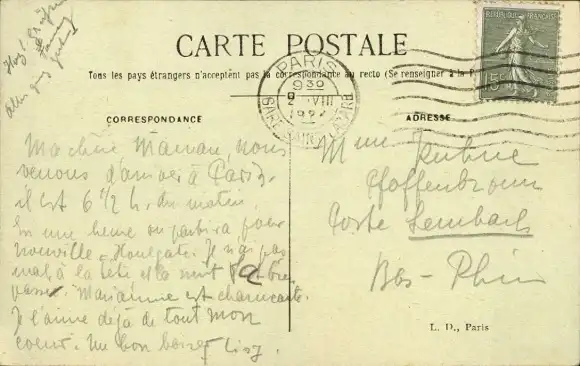 CARTE POSTALE
Tous les pays étrangers n'acceptent pas la correspondance au recto (Se renseigner à la
RÉPUBLIQUE FRANÇAISE
15
PARIS
9 30
2 VIII
CORRESPONDANCE
ADRESSE
Ma chère Maman, nous
venons d'arriver à Paris,
il est 6 1/2 h. du matin.
En une heure on partira pour
Houlgate. Je n'ai pas
mal à la tête et la nuit
passée. Marianne est charmante.
Je l'aime déjà de tout mon
coeur. Un bon baiser
Mme
Poste Lembach
Bas-Rhin
L. D., Paris